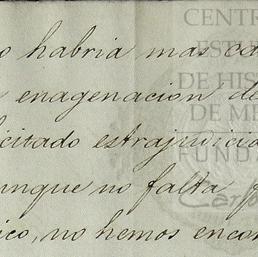 o habria mas ca
enagenacion de
icitado estrajudicia
unque no falta
ico, no hemos encon
CENTR
ESTU
DE HIS
DE ME
FUND
Carlos